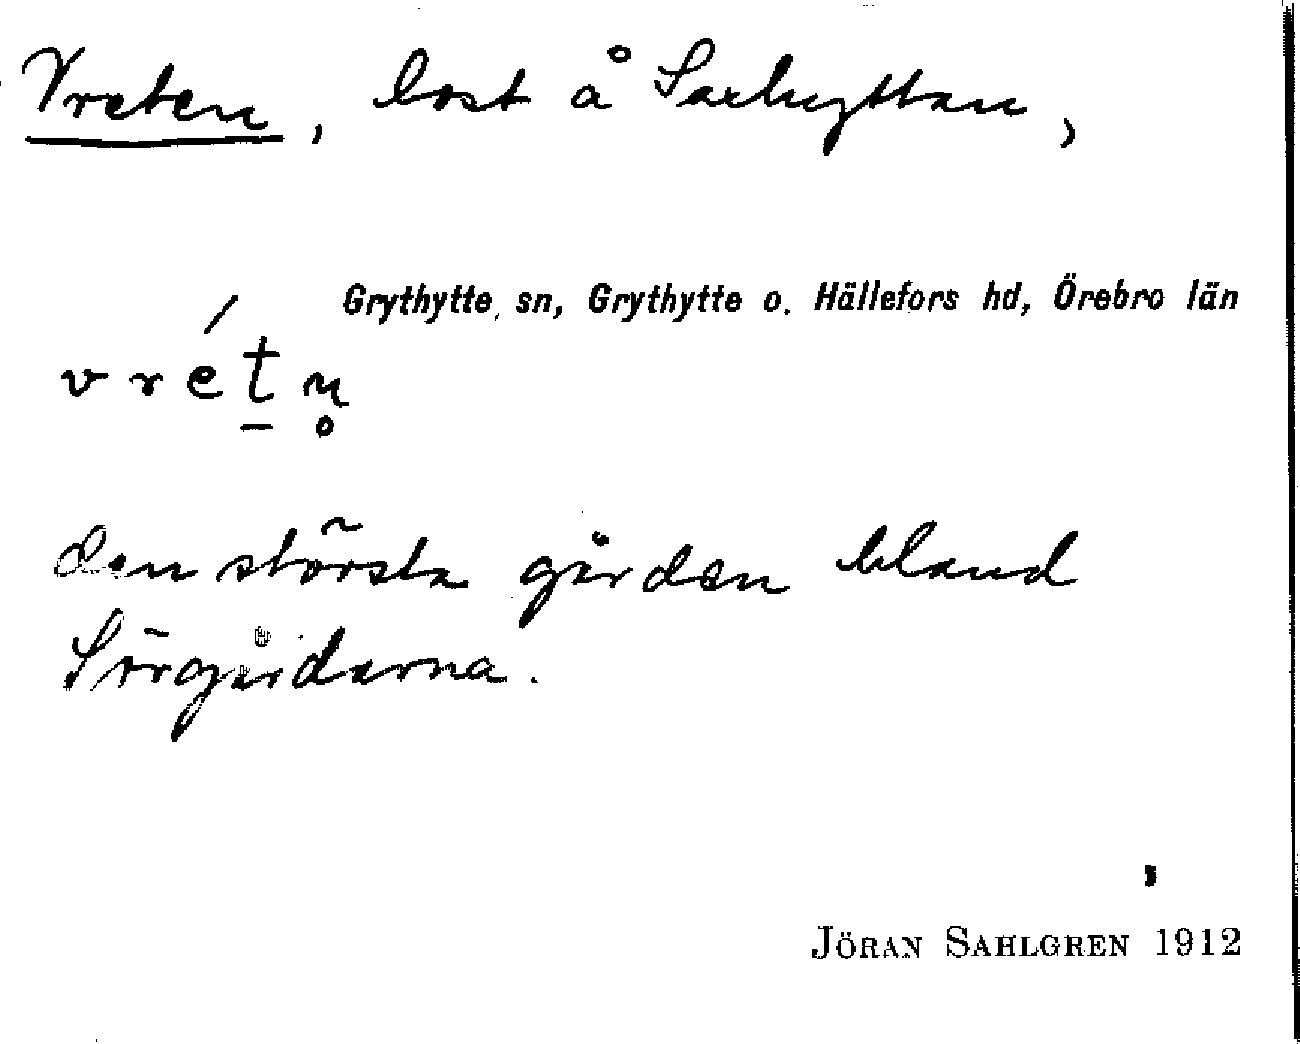 Vreten, bost å Saxhyttan,
Grythytte sn, Grythytte o. Hällefors hd, Örebro län
vrétn̥
den största gården bland
Sörgårdarna.
JÖRAN SAHLGREN 1912